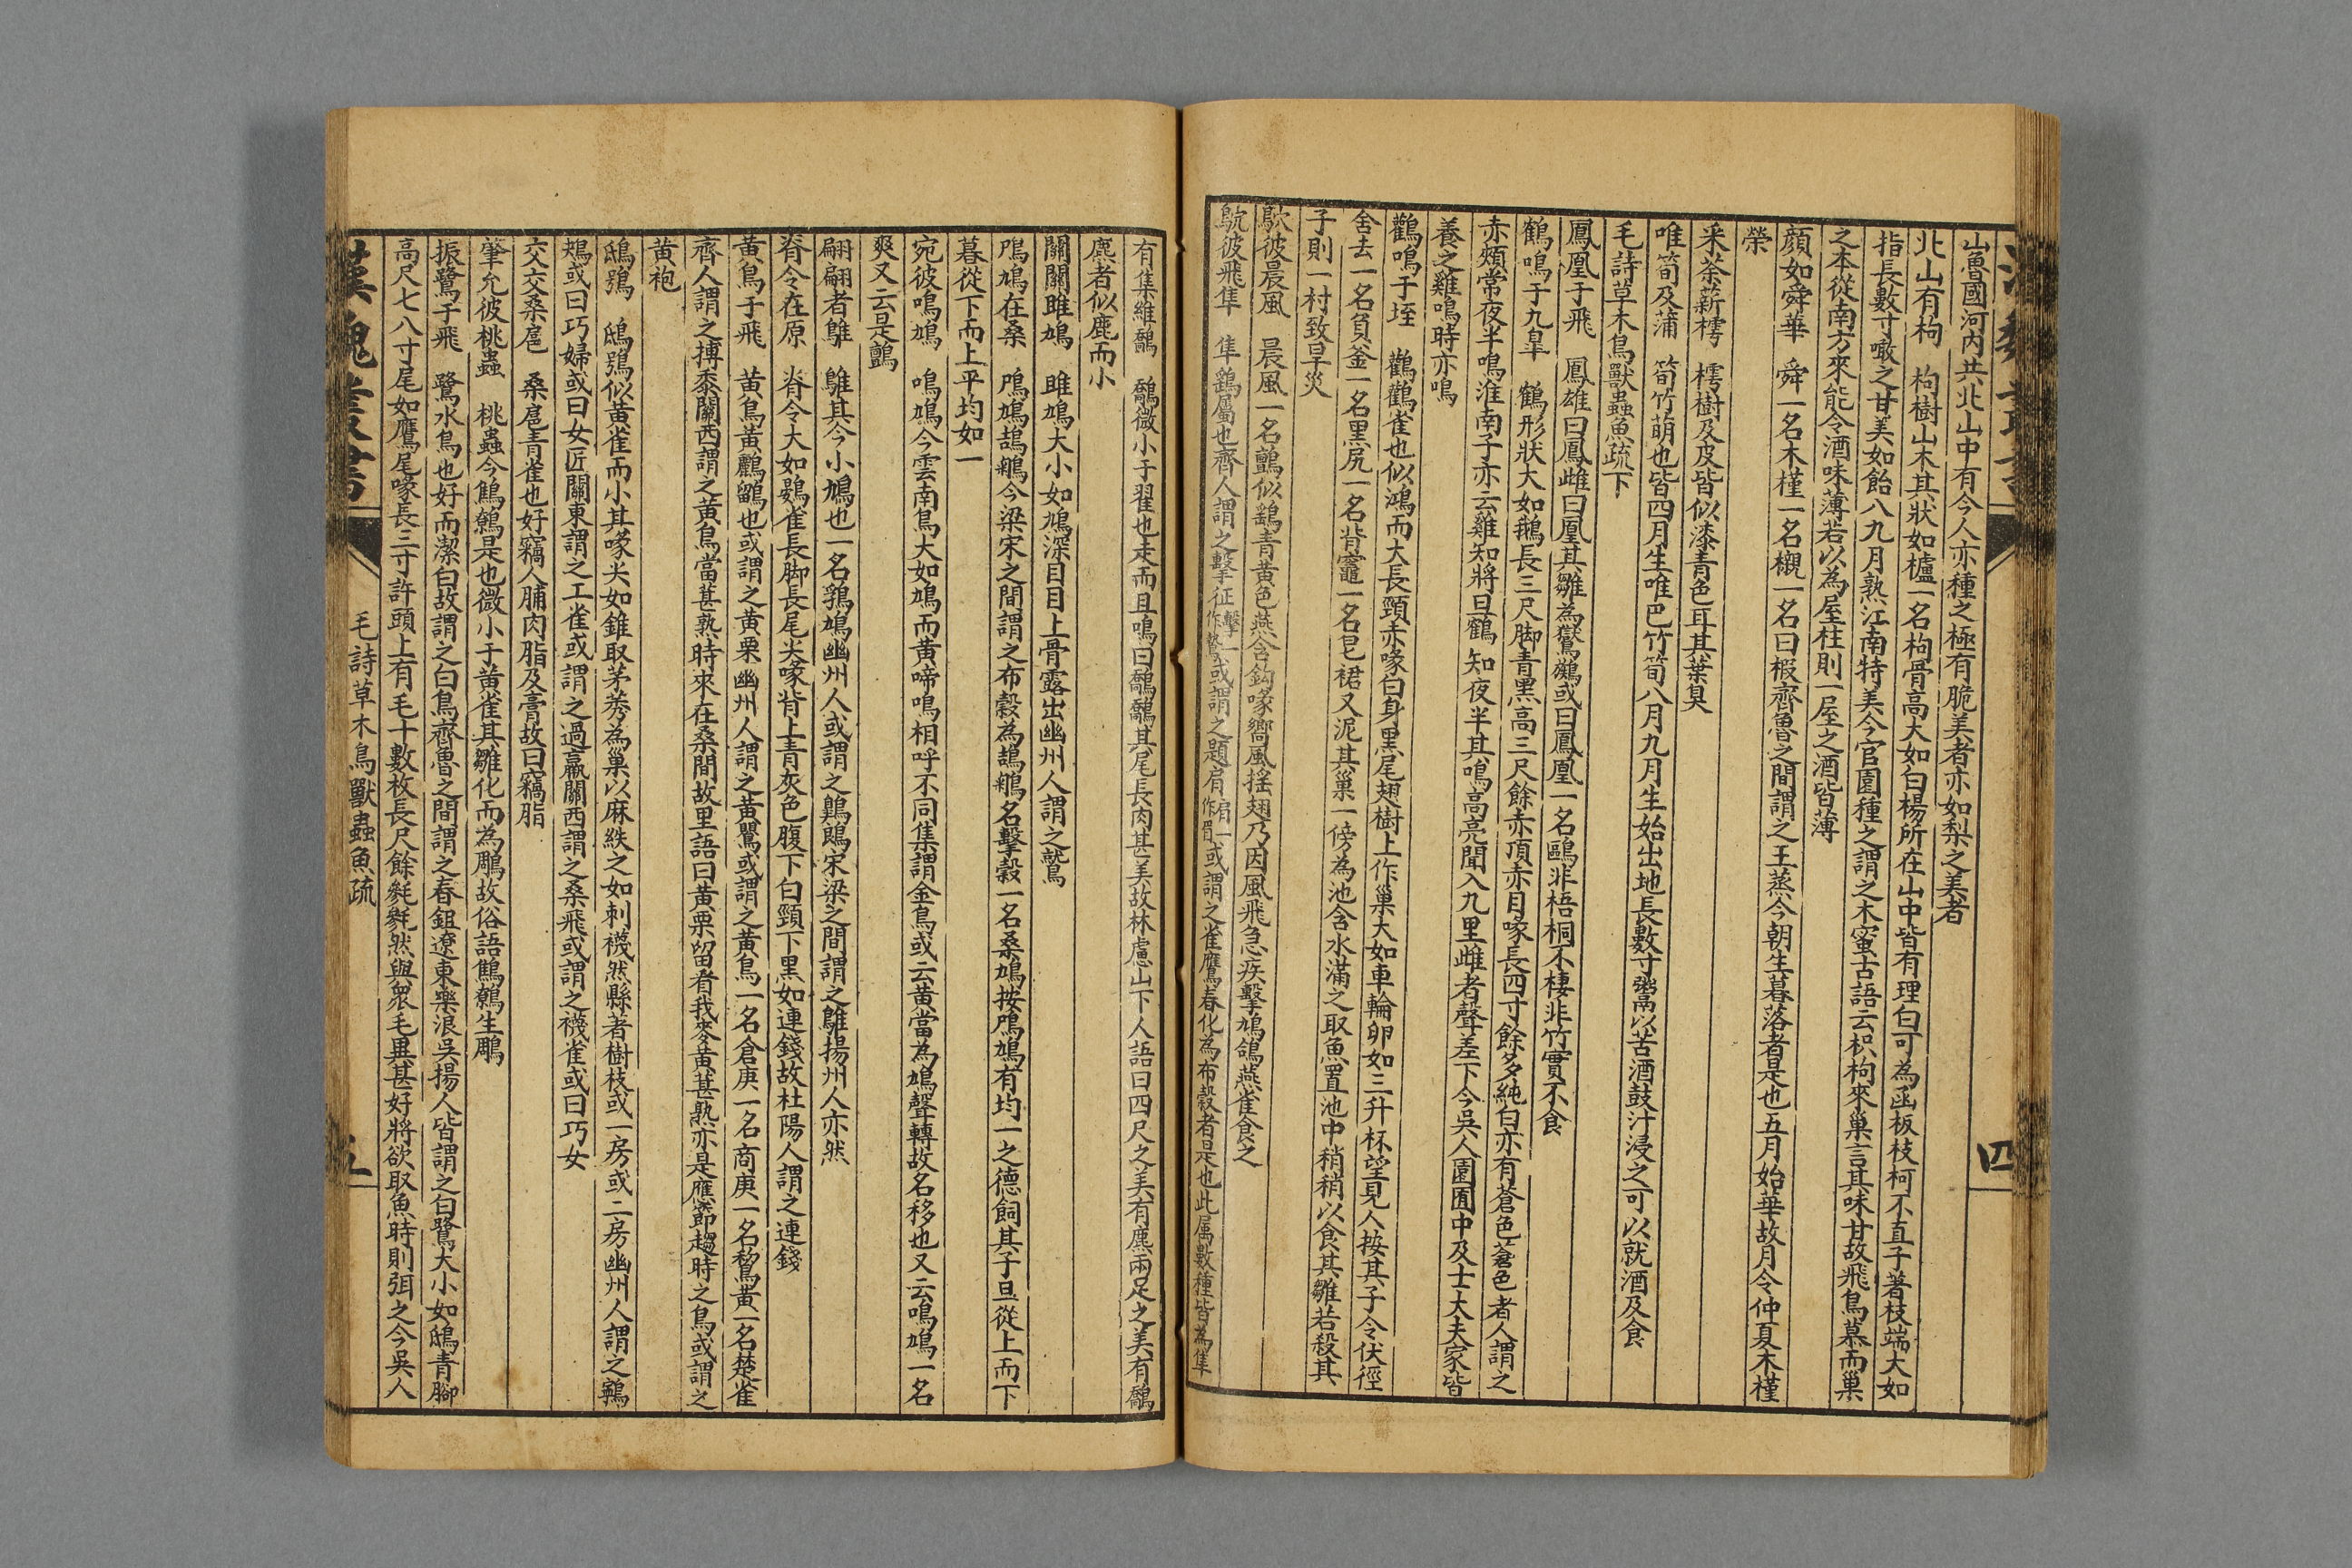 山魯國河內共北山中有今人亦種之極有脆美者亦如梨之美者
北山有枸　枸樹山木其狀如櫨一名枸骨高大如白楊所在山中皆有理白可為函板枝柯不直子著枝端大如
指長數寸噉之甘美如飴八九月熟江南特美今官園種之謂之木蜜古語云枳枸來巢言其味甘故飛鳥慕而巢
之本從南方來能令酒味薄若以為屋柱則一屋之酒皆薄
顏如舜華　舜一名木槿一名櫬一名曰椵齊魯之間謂之王蒸今朝生暮落者是也五月始華故月令仲夏木槿
榮
采荼薪樗　樗樹及皮皆似漆青色耳其葉臭
唯筍及蒲　筍竹萌也皆四月生唯巴竹筍八月九月生始出地長數寸鬻以苦酒鼓汁浸之可以就酒及食
毛詩草木鳥獸蟲魚疏下
鳳凰于飛　鳳雄曰鳳雌曰凰其雛為鸑鷟或曰鳳凰一名鶠非梧桐不棲非竹實不食
鶴鳴于九皐　鶴形狀大如鵝長三尺脚青黑高三尺餘赤頂赤目喙長四寸餘多純白亦有蒼色蒼色者人謂之
赤頰常夜半鳴淮南子亦云雞知將旦鶴知夜半其鳴高亮聞入九里雌者聲差下今吳人園囿中及士大夫家皆
養之雞鳴時亦鳴
鸛鳴于垤　鸛鸛雀也似鴻而大長頸赤喙白身黑尾翅樹上作巢大如車輪卵如三升杯望見人按其子令伏徑
舍去一名負釜一名黑尻一名背竈一名皂裙又泥其巢一傍為池含水滿之取魚置池中稍稍以食其雛若殺其
子則一村致旱災
鴥彼晨風　晨風一名鸇似鷂青黃色燕含鈎喙嚮風搖翅乃因風飛急疾擊鳩鴿燕雀食之
鴥彼飛隼　隼鷂屬也齊人謂之擊征擊一作鷙或謂之題肩肩一作眉或謂之雀鷹春化為布穀者是也此属數種皆為隼
有集維鷮　鷮微小于翟也走而且鳴曰鷮鷮其尾長肉甚美故林慮山下人語曰四尺之美有麃兩足之美有鷮
麃者似鹿而小
關關雎鳩　雎鳩大小如鳩深目目上骨露出幽州人謂之鷲
鳲鳩在桑　鳲鳩鴶鵴今梁宋之間謂之布穀為鴶鵴名擊穀一名桑鳩按鳲鳩有均一之德飼其子旦從上而下
暮從下而上平均如一
宛彼鳴鳩　鳴鳩今雲南鳥大如鳩而黃啼鳴相呼不同集謂金鳥或云黃當為鳩聲轉故名移也又云鳴鳩一名
爽又云是鸇
翩翩者鵻　鵻其今小鳩也一名鵓鳩幽州人或謂之鷎鵖宋梁之間謂之鵻揚州人亦然
脊令在原　脊令大如鷃雀長脚長尾尖喙背上青灰色腹下白頸下黑如連錢故杜陽人謂之連錢
黃鳥于飛　黃鳥黃鸝鶹也或謂之黃栗幽州人謂之黃鸎或謂之黃鳥一名倉庚一名商庚一名鵹黃一名楚雀
齊人謂之搏黍關西謂之黃鳥當葚熟時來在桑間故里語曰黃栗留看我麥黃葚熟亦是應節趨時之鳥或謂之
黃袍
鴟鴞　鴟鴞似黃雀而小其喙尖如錐取茅莠為巢以麻紩之如刺襪然縣著樹枝或一房或二房幽州人謂之鸋
鴂或曰巧婦或曰女匠關東謂之工雀或謂之過羸關西謂之桑飛或謂之襪雀或曰巧女
交交桑扈　桑扈青雀也好竊人脯肉脂及膏故曰竊脂
肇允彼桃蟲　桃蟲今鷦鷯是也微小于黃雀其雛化而為鵰故俗語鷦鷯生鵰
振鷺于飛　鷺水鳥也好而潔白故謂之白鳥齊魯之間謂之舂鉏遼東樂浪吳揚人皆謂之白鷺大小如鴟青腳
高尺七八寸尾如鷹尾喙長三寸許頭上有毛十數枚長尺餘毿毿然與衆毛異甚好將欲取魚時則弭之今吳人
漢魏叢書
毛詩草木鳥獸蟲魚疏
五
四